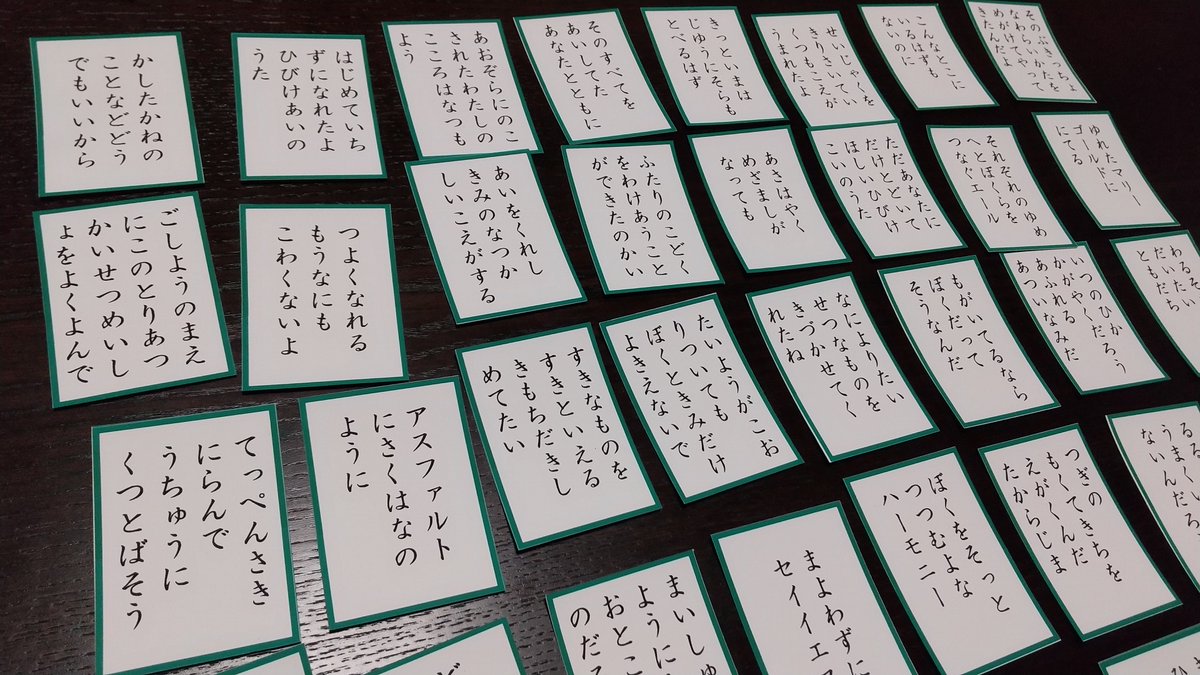 かしたかねの
ことなどどう
でもいいから
はじめていち
ずになれたよ
ひびけあいの
うた
あおぞらにのこ
されたわたしの
こころはなつも
よう
そのすべてを
あいしてた
あなたとともに
きっといまは
じゆうにそらも
とべるはず
せいじゃくを
きりさいてい
くつもこえが
うまれたよ
こんなとこに
いるはずも
ないのに
そのぶきっちょ
なわらいかたを
めがけてやって
きたんだよ
ごしようのまえ
にこのとりあつ
かいせつめいし
ょをよくよんで
つよくなれる
もうなにも
こわくないよ
あいをくれし
きみのなつか
しいこえがする
ふたりのこどく
をわけあうこと
ができたのかい
あさはやく
めざましが
なっても
ただあなたに
だけとどいて
ほしいひびけ
こいのうた
それぞれのゆめ
へとぼくらを
つなぐエール
ゆれたマリー
ゴールドに
にてる
てっぺんさき
にらんで
うちゅうに
くつとばそう
アスファルト
にさくはなの
ように
すきなものを
すきといえる
きもちだきし
めてたい
たいようがこお
りついても
ぼくときみだけ
よきえないで
なによりたい
せつなものを
きづかせてく
れたね
もがいてるなら
ぼくだって
そうなんだ
いつのひだろう
かがやくなみだ
あふれるみだ
あついなみだ
わるそ
だいたい
ともだち
まいしゅ
ように
おとこ
のだろ
まよわずに
セイイエス
ぼくをそっと
つつむよな
ハーモニー
つぎのきちを
もくてくんだ
えがくんだ
たからじま
るまく
うまれ
ないんだろ